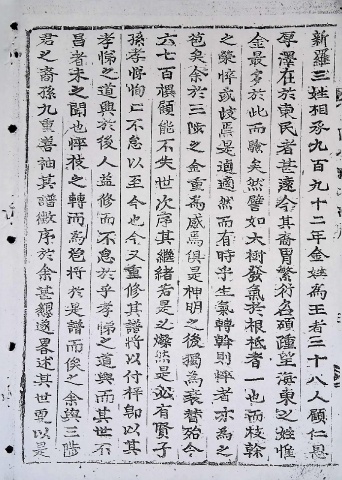 新羅三姓相承九百九十二年金姓爲王者三十八人顧仁恩
厚澤在於東民者甚遠今其裔胄繁衍名碩踵望海東之姓惟
金最多於此而驗矣然譬如大樹發氣於根柢者一也而枝幹
之榮悴或歧焉是適然而有時乎生氣轉斡則悴者亦爲之
苞矣余於三陟之金重爲感焉俱是神明之後獨爲衰替殆今
六七百禩顧能不失世次序其繼緖若是之燦然是必有賢子
孫孝悌恂恂不怠以至今也今又重修其譜將以付梓卽以其
孝悌之道興於後人益修而不怠於乎孝悌之道興而其世不
昌者未之聞也悴枝之轉而爲苞將於是譜而俟之余與三陟
君之裔孫九重善袖其譜徵序於余甚繆遂畧述其世更以是